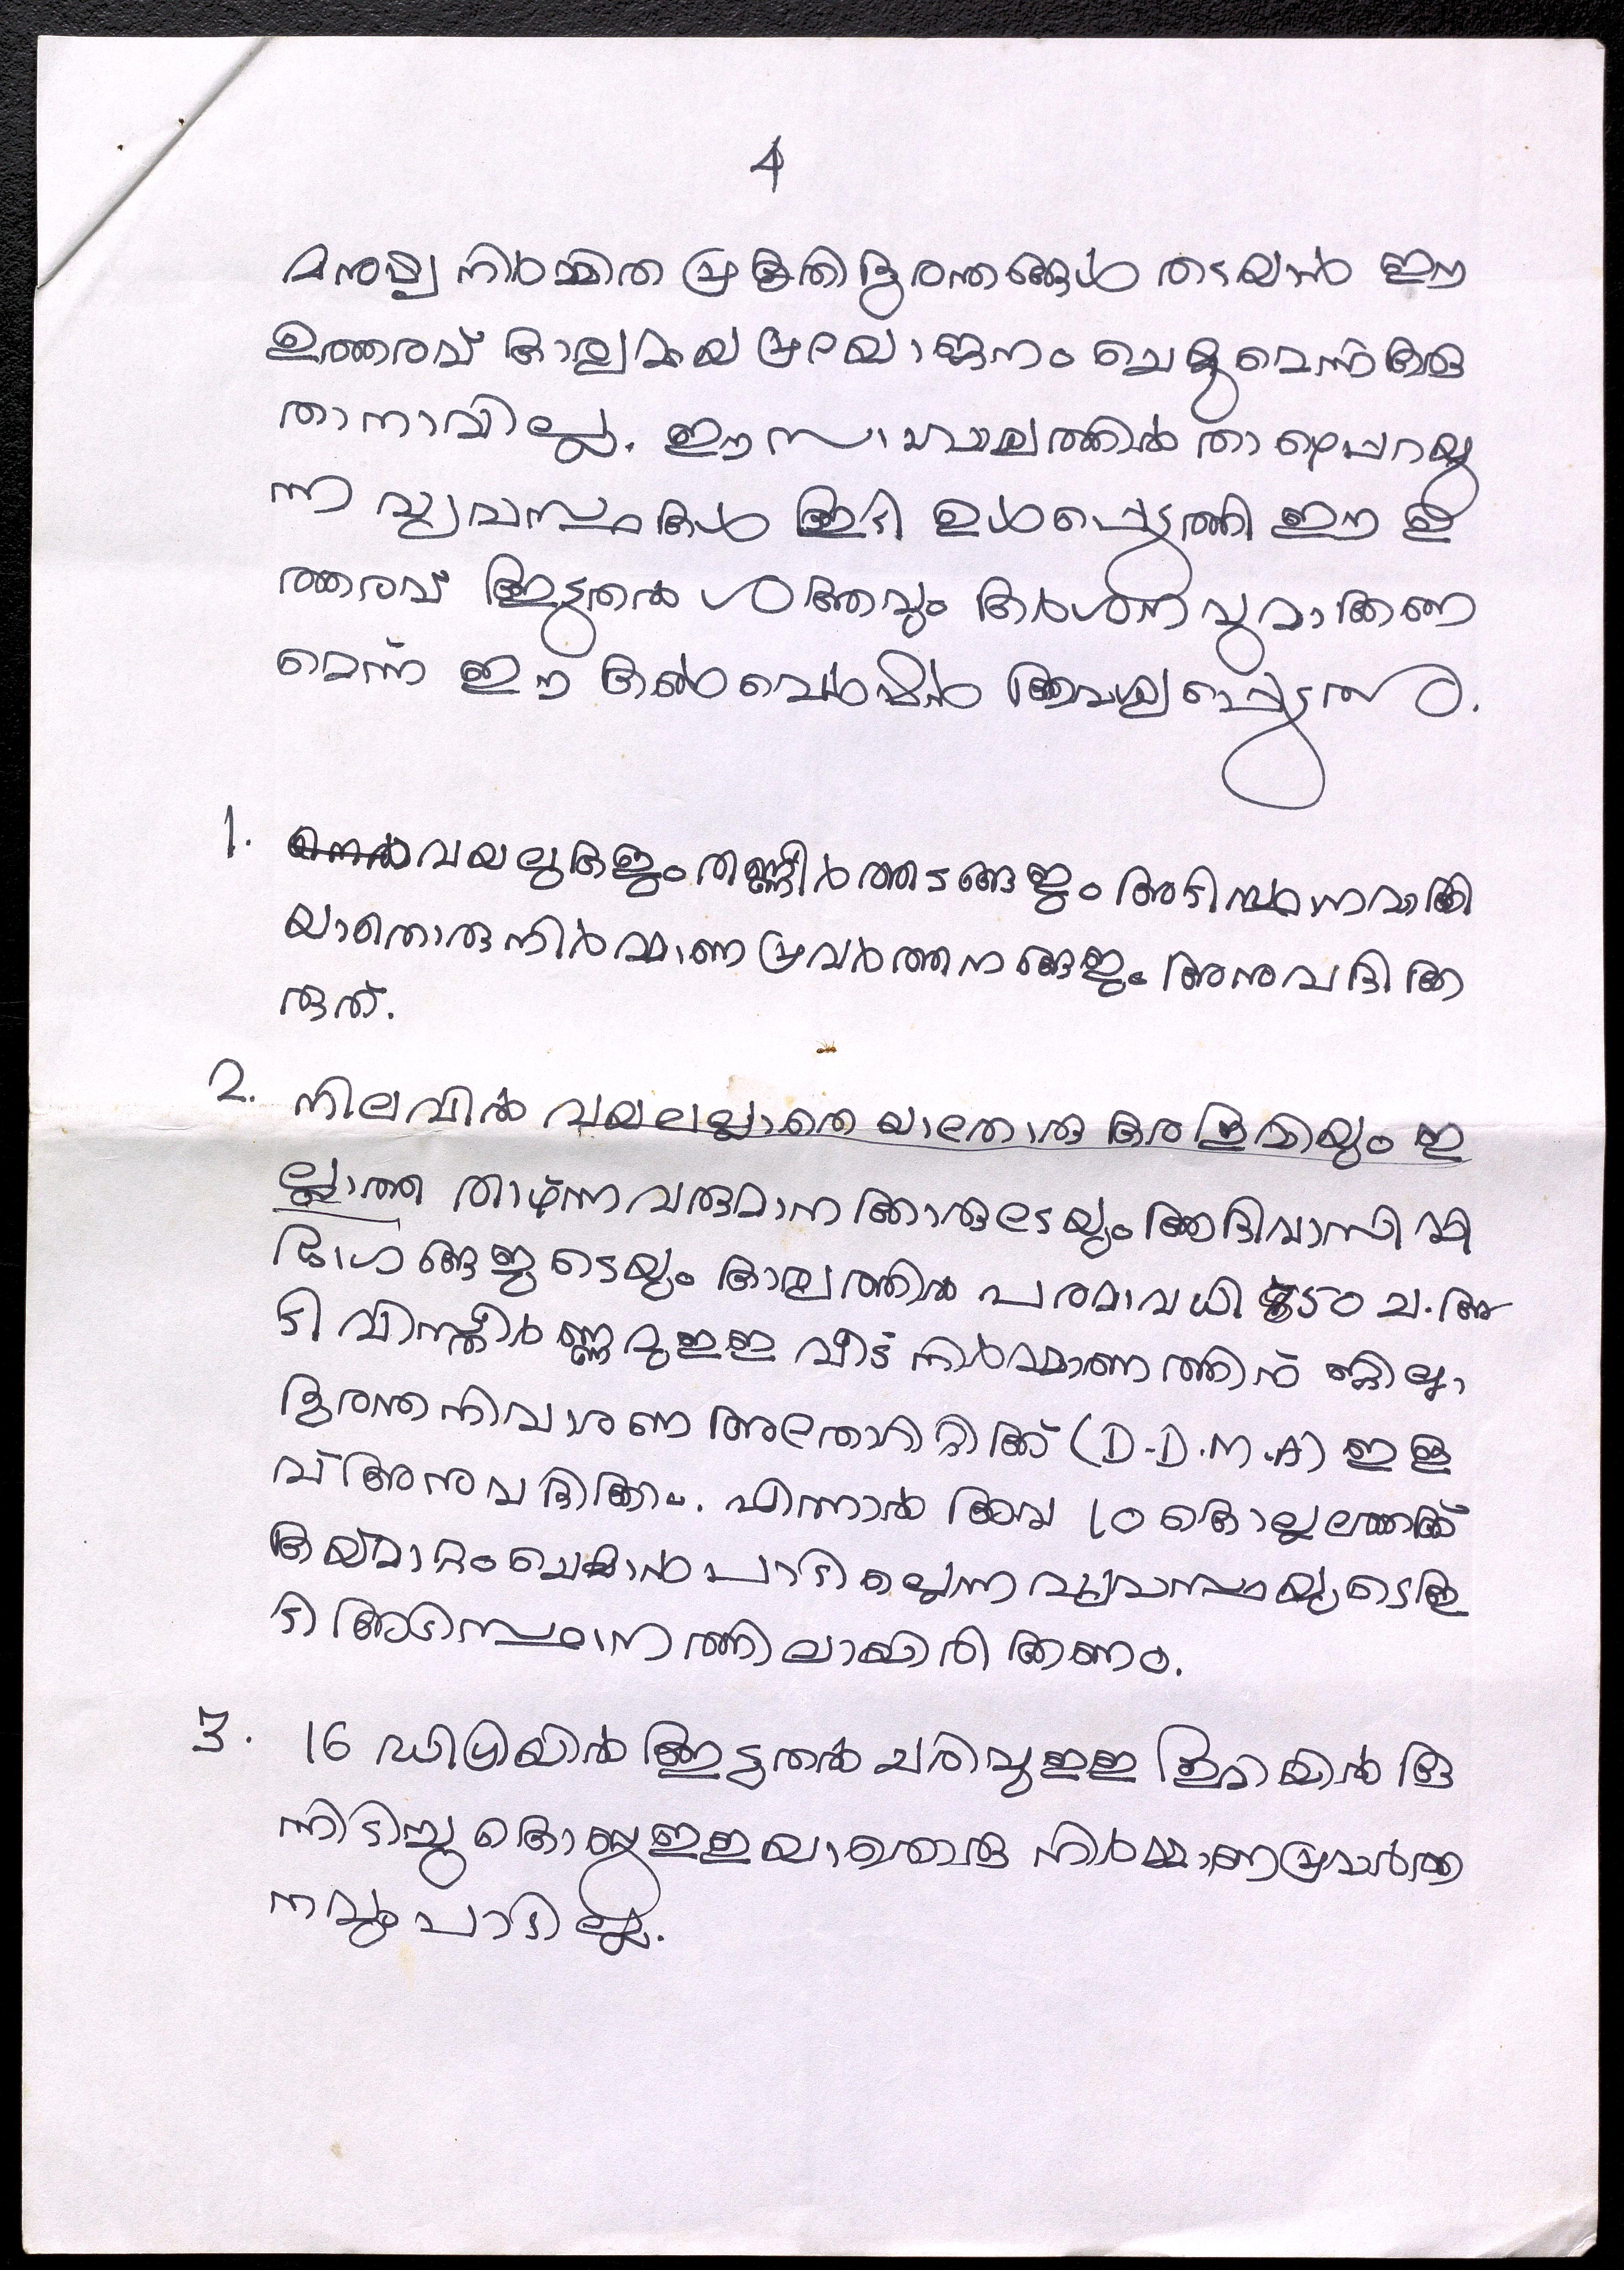 4
മനുഷ്യ നിർമ്മിത പ്രകൃതി ദുരന്തങ്ങൾ തടയാൻ ഈ
ഉത്തരവ് കാര്യമായ പ്രയോജനം ചെയ്യുമെന്ന് കരു
താനാവില്ല. ഈ സാഹചര്യത്തിൽ താഴെപ്പറയു
ന്ന വ്യവസ്ഥകൾ കൂടി ഉൾപ്പെടുത്തി ഈ ഉ
ത്തരവ് കൂടുതൽ ശക്തവും കർശനവുമാക്കണ
മെന്ന് ഈ കൺവെൻഷൻ ആവശ്യപ്പെടുന്നു.
1. വയലുകളും തണ്ണീർത്തടങ്ങളും അടിസ്ഥാനമാക്കി
യാതൊരു നിർമ്മാണ പ്രവർത്തനങ്ങളും അനുവദിക്ക
രുത്.
2. നിലവിൽ വയലല്ലാതെ യാതൊരു കരഭൂമിയും ഇ
ല്ലാത്ത താഴ്ന്ന വരുമാനക്കാരുടെയും ആദിവാസി വി
ഭാഗങ്ങളുടെയും കാര്യത്തിൽ പരമാവധി 750 ച.അ
ടി വിസ്തീർണ്ണമുള്ള വീട് നിർമ്മാണത്തിന് ജില്ലാ
ദുരന്തനിവാരണ അതോറിറ്റിക്ക് (D.D.M.A) ഇള
വ് അനുവദിക്കാം. എന്നാൽ അവ 10 കൊല്ലത്തേക്ക്
കൈമാറ്റം ചെയ്യാൻ പാടില്ലെന്ന വ്യവസ്ഥയുടെ കൂ
ടി അടിസ്ഥാനത്തിലായിരിക്കണം.
3. 16 ഡിഗ്രിയിൽ കൂടുതൽ ചരിവുള്ള ഭൂമിയിൽ കു
ന്നിടിച്ചു കൊണ്ടുള്ള യാതൊരു നിർമ്മാണപ്രവർത്ത
നവും പാടില്ല.